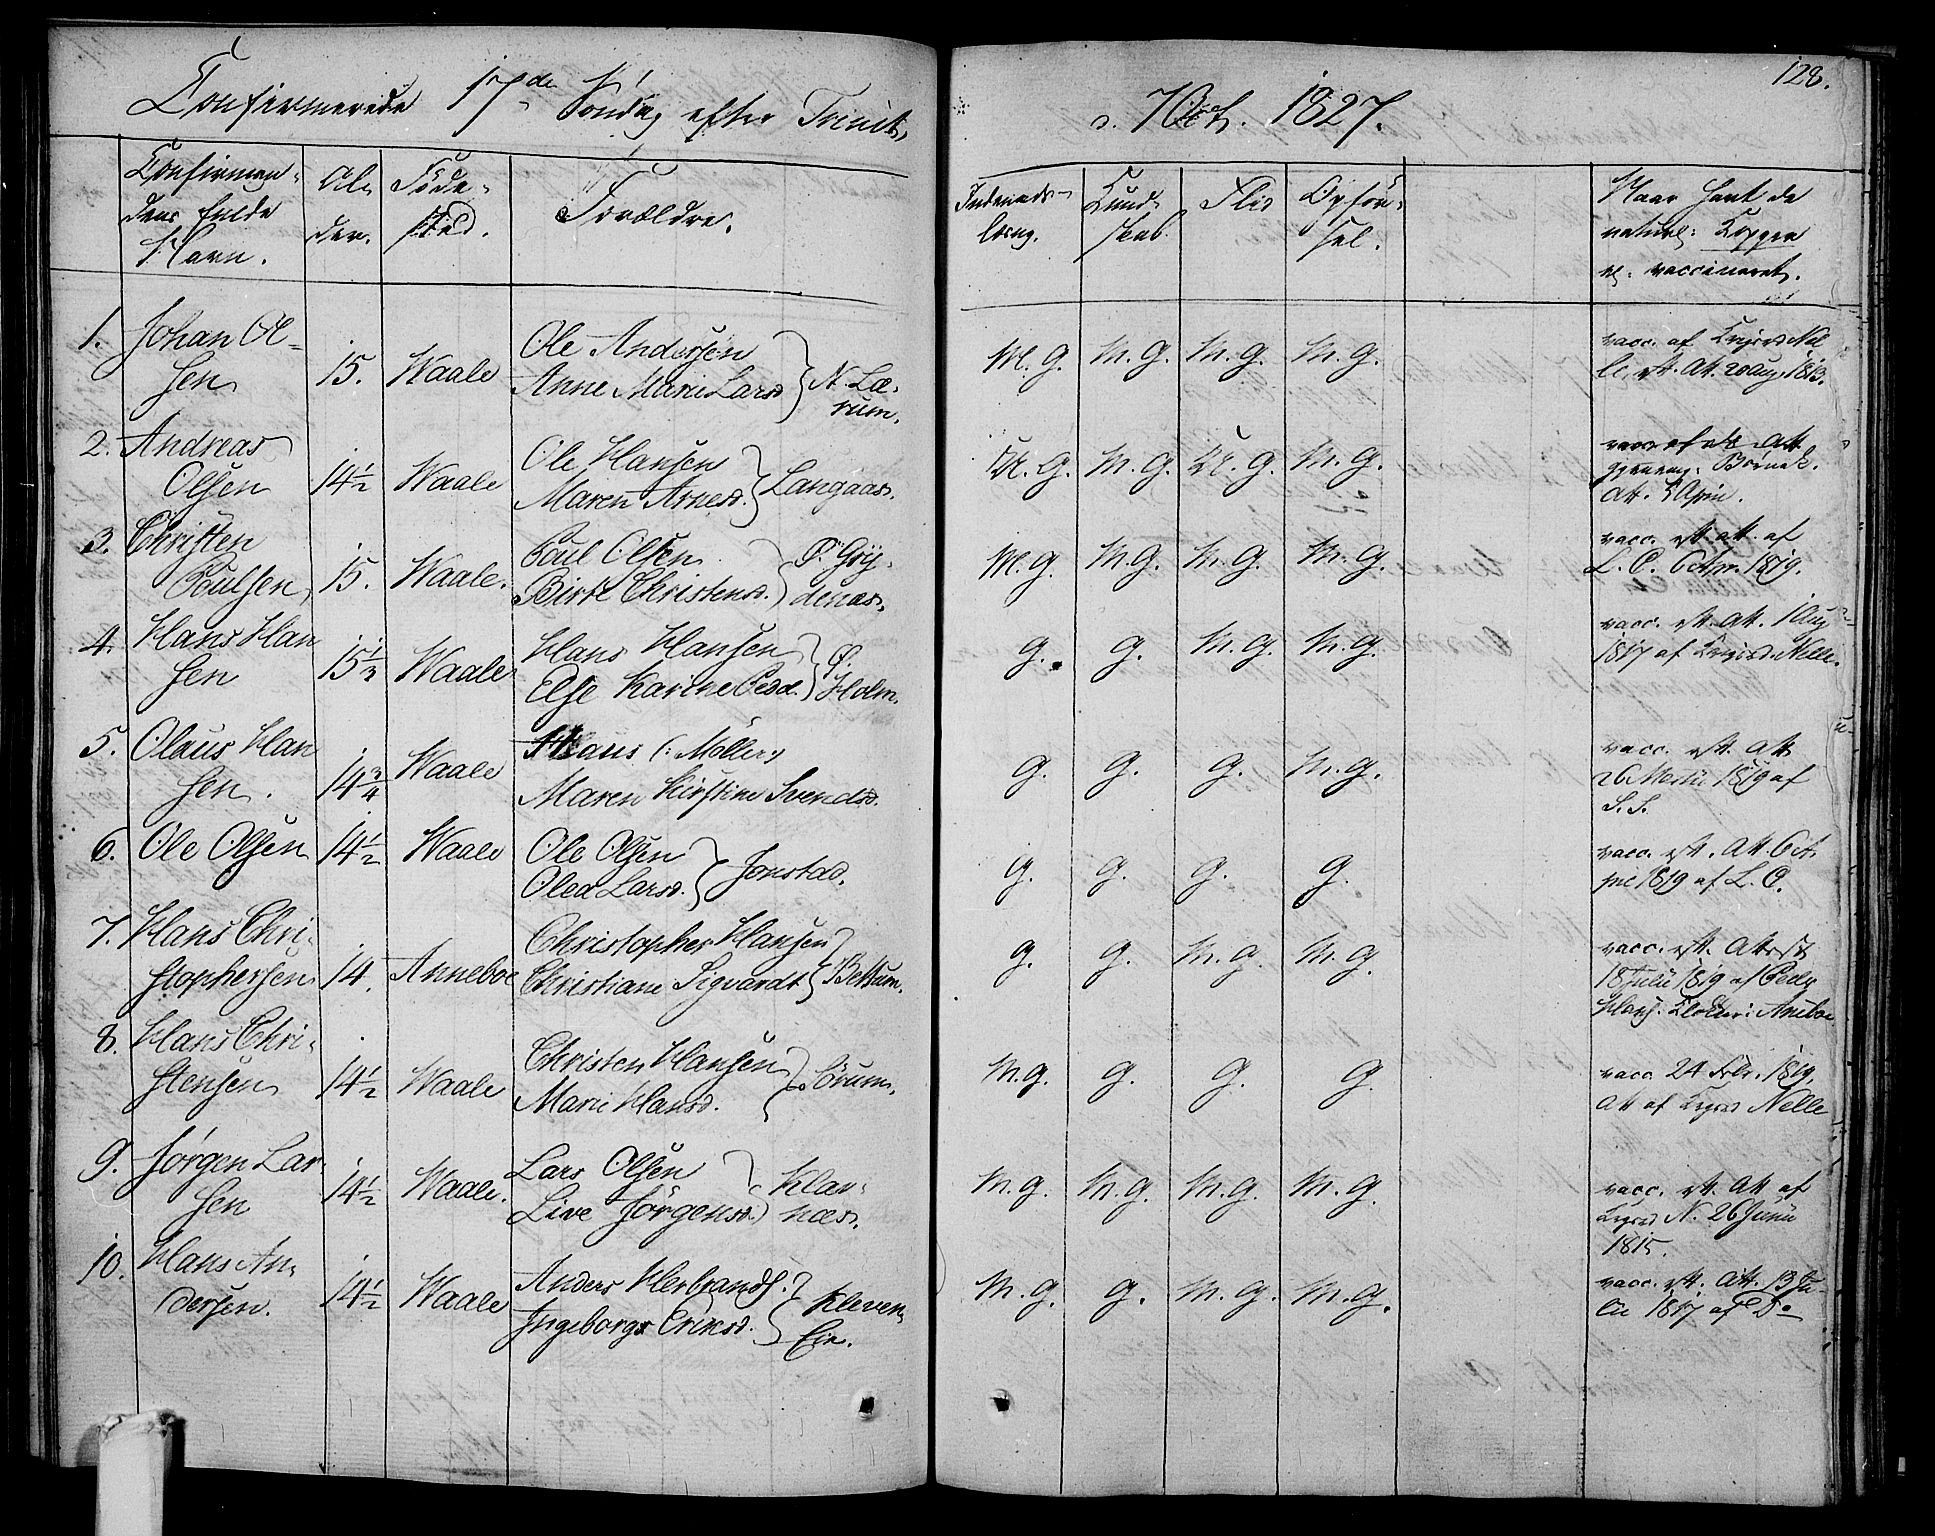 128.
Confirmerede 17de Söndag efter Trinit,
d. 7 Oct. 1827.
Confirman-
dens fulde
Navn.
Al-
der.
Föde-
sted.
Forældre.
Indenads-
læsng.
Kund-
skab.
Flid
Opför-
sel.
Naar havt de
naturl: Kopper
el. vaccineret.
1. Johan Ol-
sen
15.
Waale
Ole Andersen
Anne Marie Larsd.
N. Læ-
rum.
M. G. M. G. M. G. M. G.
vacc. af
Att. 20 Aug 1813.
2. Andreas
Olsen
14½
Waale
Ole Hansen
Maren Arnesd.
Langaas.
M. G. M. G.
att. 5 April.
3. Christen
Poulsen
15.
Waale.
Poul Olsen
Birte Christensd.
denæs.
M. G. M. G. M. G. M. G.
vacc. att. af
L. C. 1819.
4. Hans Han
sen
15½
Waale
Hans Hansen
Else Karine Pedd.
Ø.
Holm.
G. G. M. G. M. G.
vacc. att. 1 Aug
1817 af Nelle.
5. Olaus Han
sen.
14¾
Waale
Hans (: Möller)
Maren Kirstine Svendsd.
G. G. G. M. G.
vacc. att
26 Martii 1819 af
S. S.
6. Ole Olsen
14½
Waale
Ole Olsen
Olea Larsd.
Jonstad.
G. G. G. G.
vacc. Att. 6 A-
pril 1819 af L. C.
7. Hans Chri-
stophersen
14.
Anneboe
Christopher Hansen
Christiane Sigvardt.
Bettum.
G. G. M. G. M. G.
vacc. Attest
18 Julii 1819 af Peder
Hans. Klokker: Aneboe
8. Hans Chri-
stensen
14½
Waale
Christen Hansen
Marie Hansd.
Sörum.
M. G. G. G. G
vacc. 24 Febr. 1819,
Att af Nelle
9. Jørgen Lar
sen
14½
Waale.
Lars Olsen
Live Jørgensd.
Klar-
næs.
M. G. M. G. M. G. M. G.
vacc. Att af
N. 26 Junii
1815.
10. Hans An-
dersen.
14½
Waale
Anders Herbrands.
Ingeborg Eriksd.
Kleven
Eie.
M. G. G. M. G. M. G.
vacc. Att. 13 Ju-
lii 1817 af Do